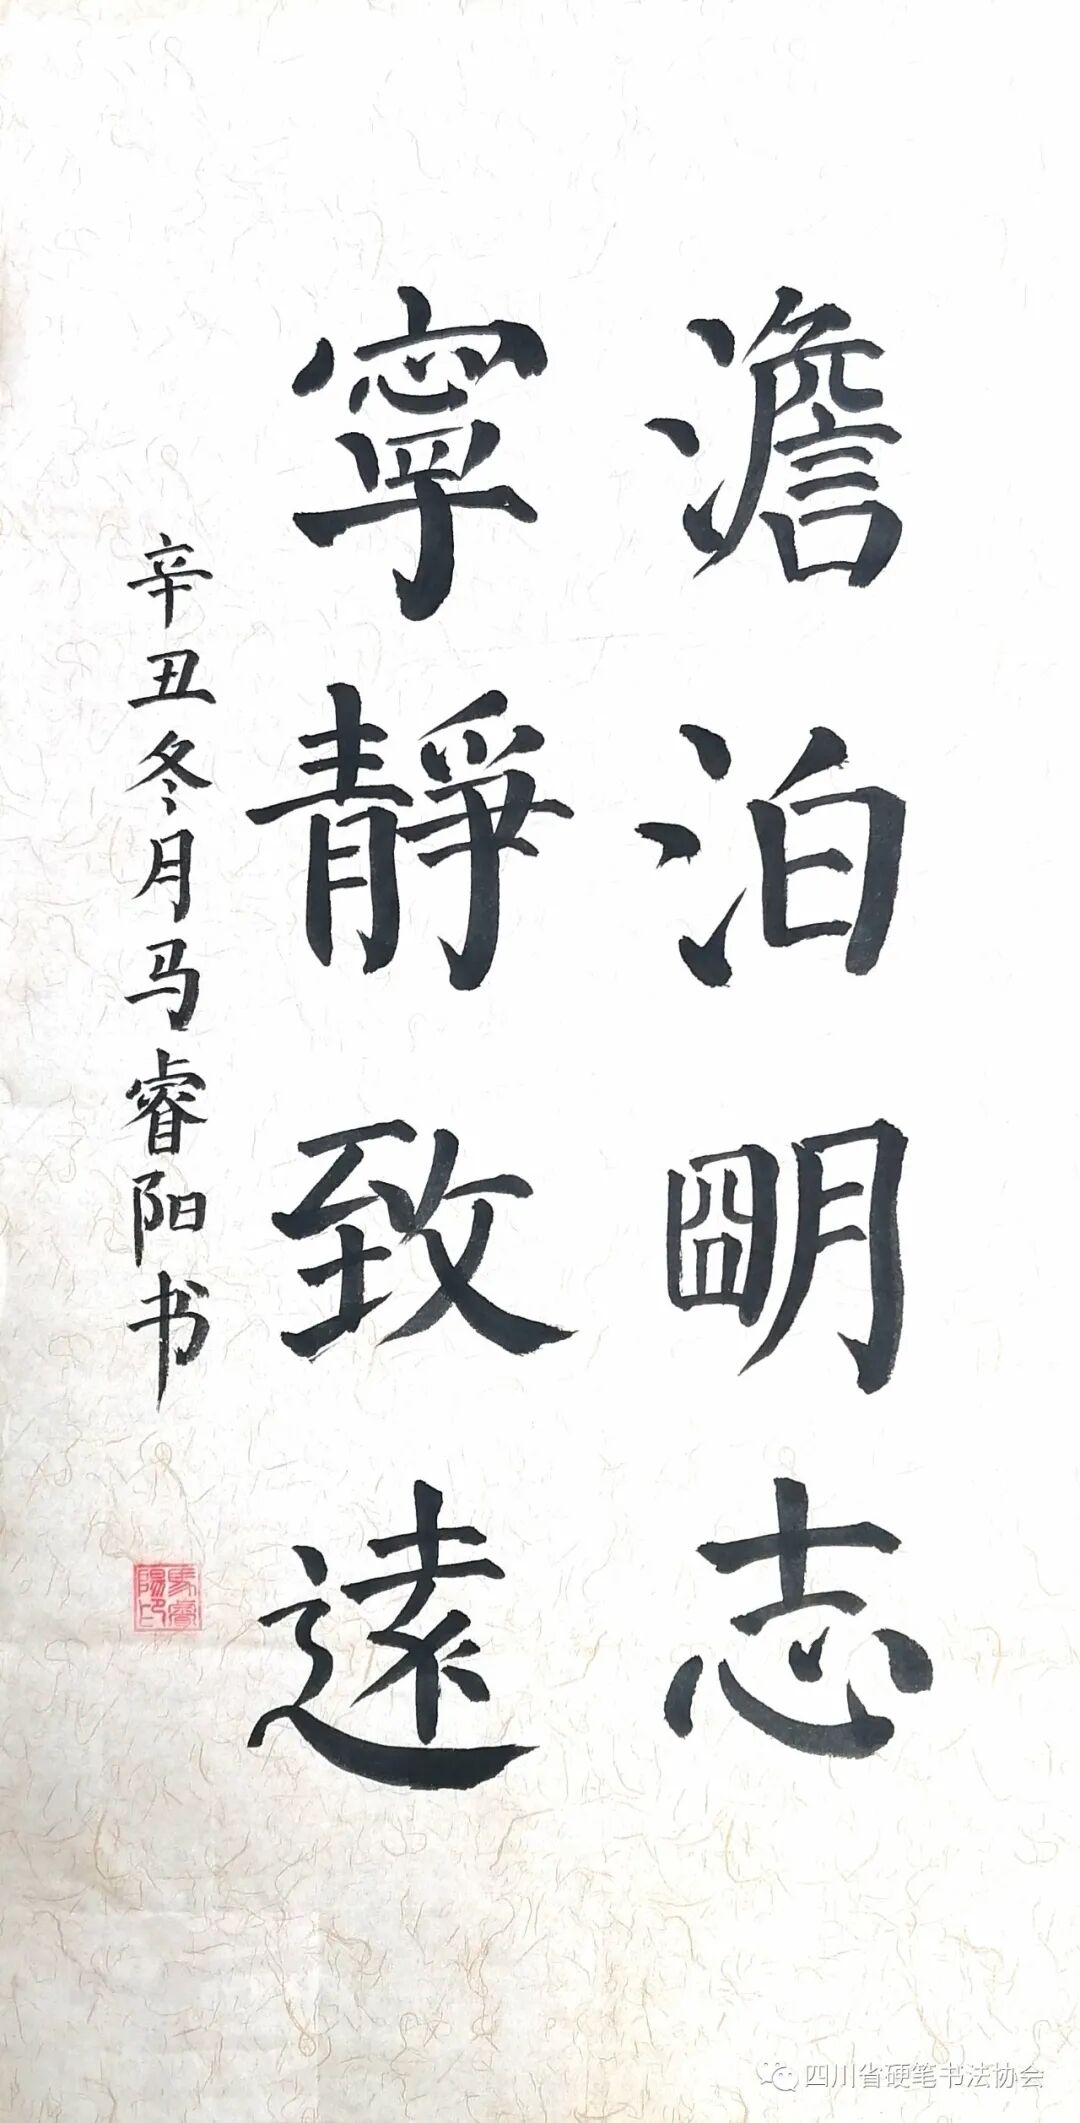 澹泊朙志
寧靜致遠
辛丑冬月马睿阳书
馬睿陽印
四川省硬笔书法协会